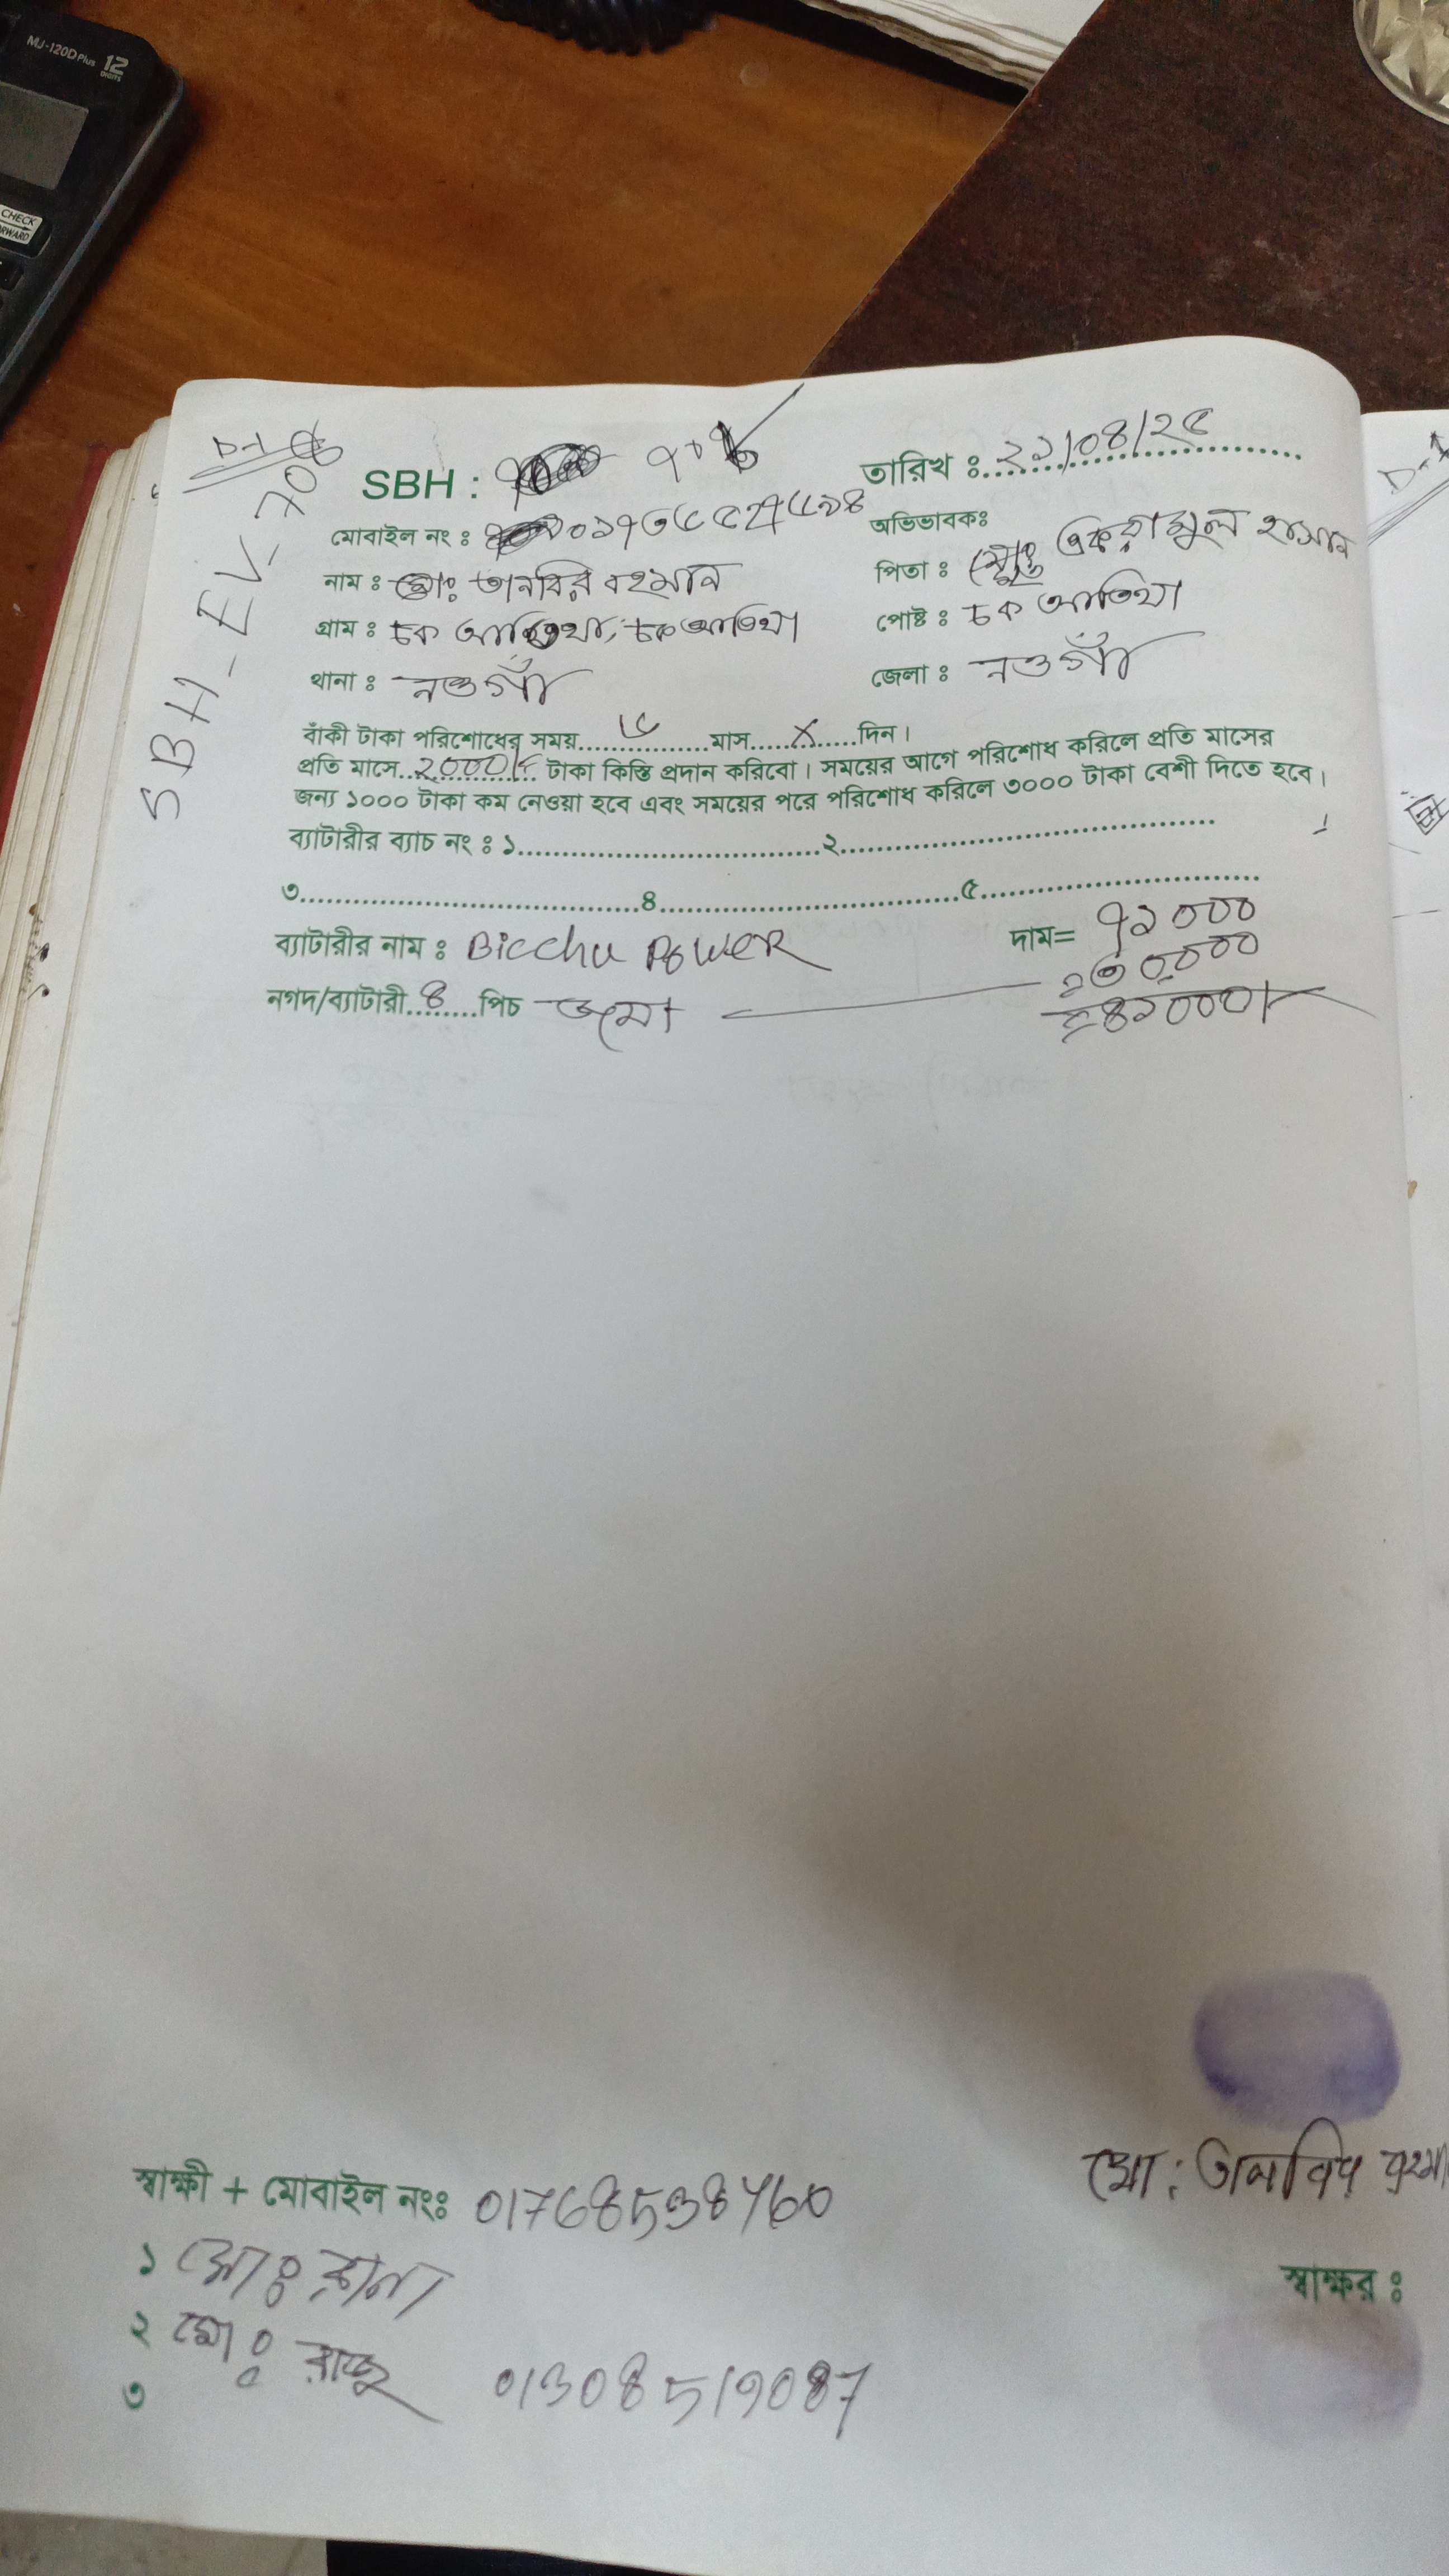 MJ-120D Plus 12 DIGITS
CHECK
D-1
SBH - EV - 706
SBH : ৭০৬
তারিখ ঃ ২১/০৪/২৫
মোবাইল নং ঃ
অভিভাবকঃ
নাম ঃ মোঃ তানবির রহমান
পিতা ঃ একরামুল হাসান
গ্রাম ঃ চক আতিথা, চক আতিথা
পোষ্ট ঃ চক আতিথা
থানা ঃ নওগাঁ
জেলা ঃ নওগাঁ
বাঁকী টাকা পরিশোধের সময়..........মাস.....X.....দিন।
প্রতি মাসে.. টাকা কিস্তি প্রদান করিবো। সময়ের আগে পরিশোধ করিলে প্রতি মাসের
জন্য ১০০০ টাকা কম নেওয়া হবে এবং সময়ের পরে পরিশোধ করিলে ৩০০০ টাকা বেশী দিতে হবে।
ব্যাটারীর ব্যাচ নং ঃ ১..............................২..............................
৩..............................৪..............................৫..............................
ব্যাটারীর নাম ঃ Bicchu POWER
দাম= ৭১০০০
৩০০০০
নগদ/ব্যাটারী..৪..পিচ জমা
=৪১০০০/-
মো: তানবির রহমা
স্বাক্ষী + মোবাইল নংঃ 01768538460
১ মোঃ রানা
স্বাক্ষর ঃ
২ মোঃ রাজু
৩ 01308519087